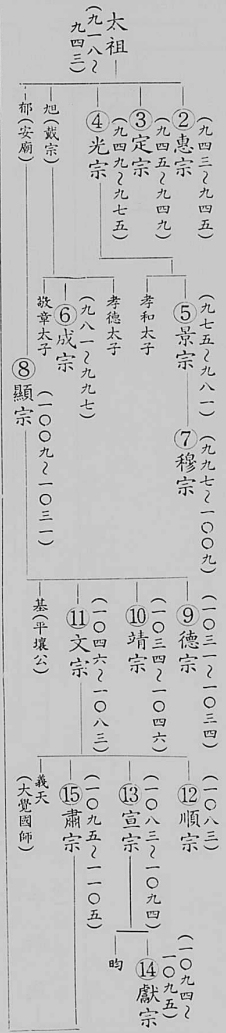 太祖
(九一八～
九四三)
②惠宗
(九四三～九四五)
③定宗
(九四五～九四九)
④光宗
(九四九～九七五)
旭(戴宗)
郁(安廟)
⑤景宗
(九七五～九八一)
孝和太子
孝德太子
⑥成宗
(九八一～九九七)
敬章太子
⑦穆宗
(九九七～一〇〇九)
⑧顯宗
(一〇〇九～一〇三一)
⑨德宗
(一〇三一～一〇三四)
⑩靖宗
(一〇三四～一〇四六)
⑪文宗
(一〇四六～一〇八三)
基(平壤公)
⑫順宗
(一〇八三)
⑬宣宗
(一〇八三～一〇九四)
⑮肅宗
(一〇九五～一一〇五)
義天
(大覺國師)
⑭獻宗
(一〇九四～
一〇九五)
昀